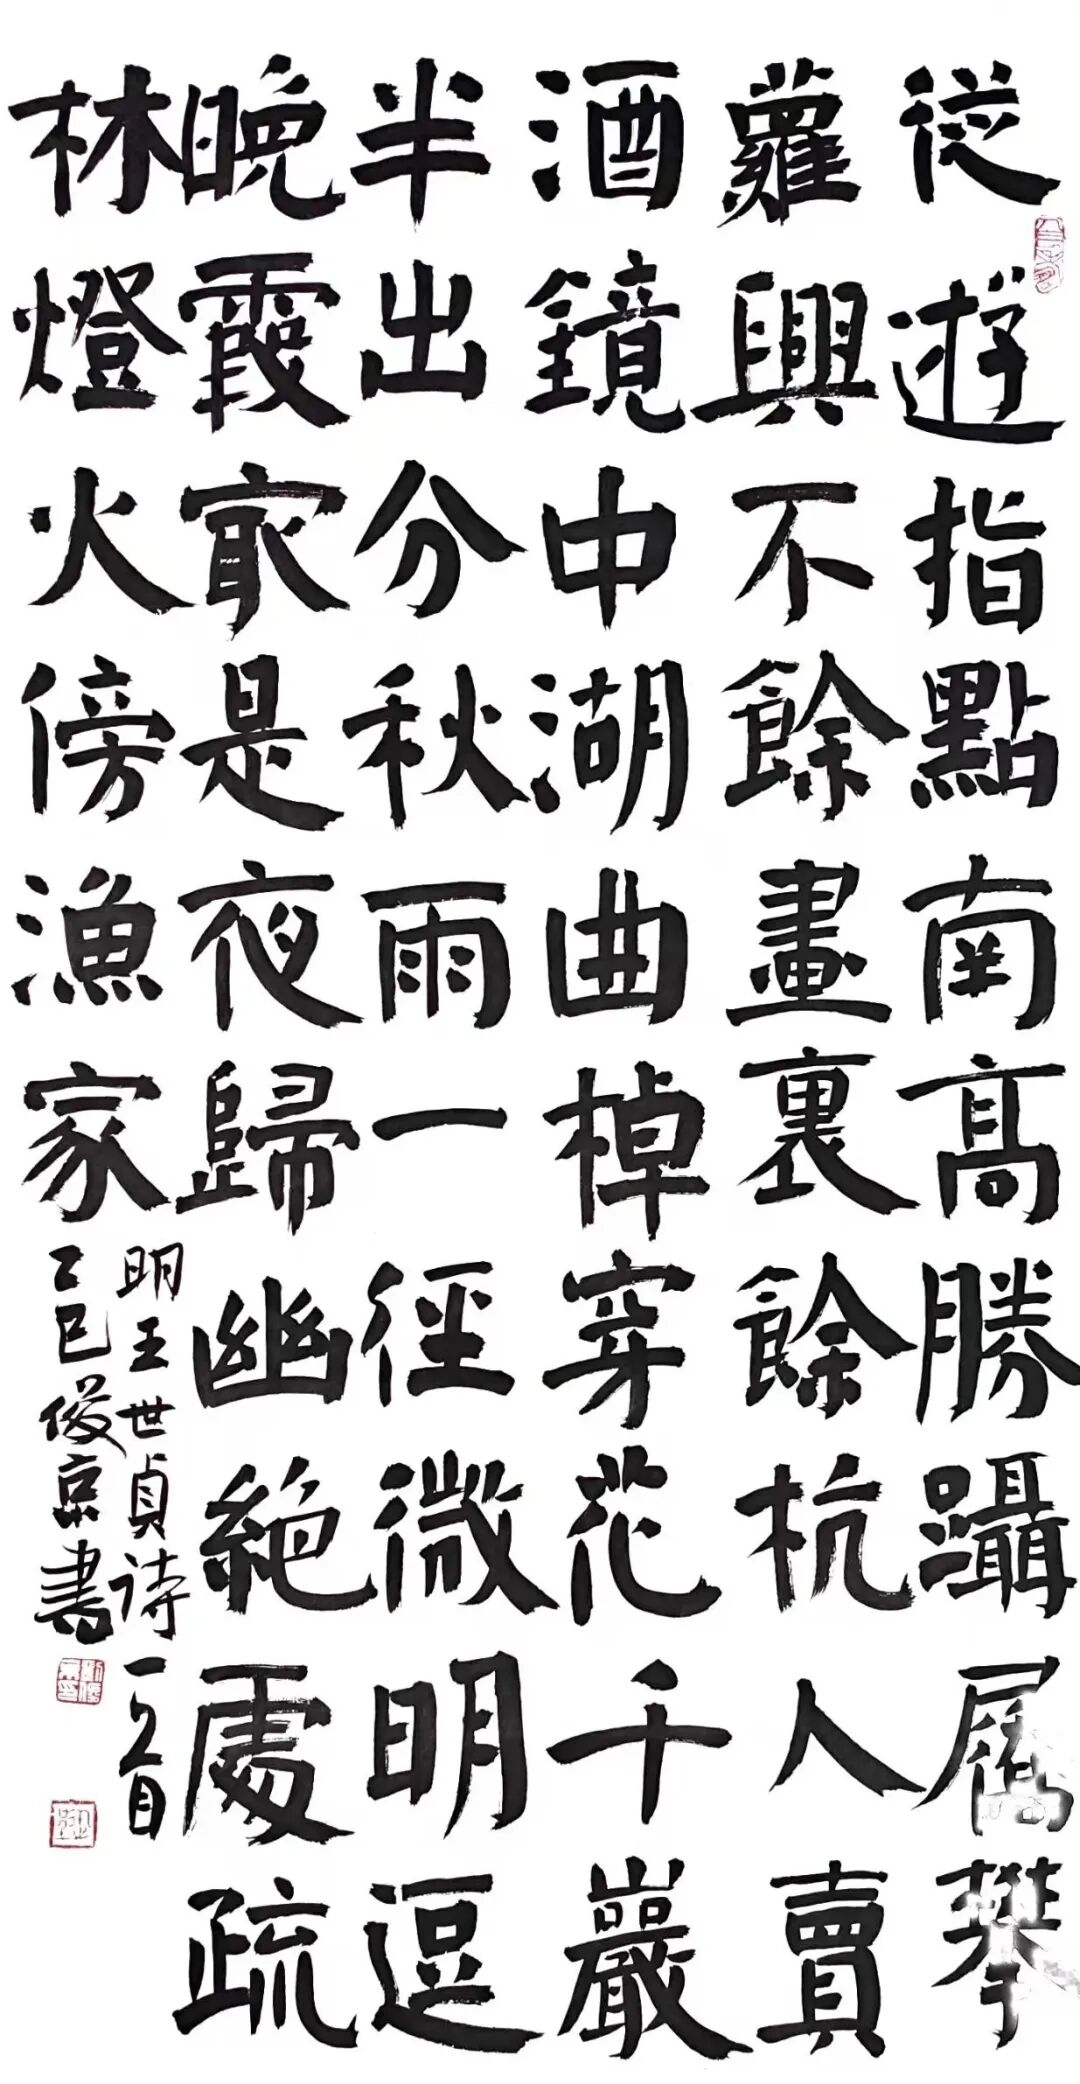 從遊指點南高勝躡屩攀
蘿興不餘畫裏餘杭人賣
酒鏡中湖曲棹穿花千巖
半出分秋雨一徑微明逗
晚霞最是夜歸幽絶處疏
林燈火傍漁家
明王世貞诗
乙巳俊京書